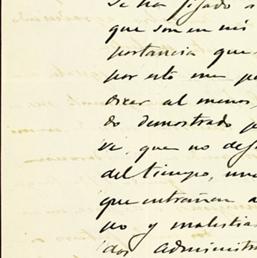 Se ha fijado
que son en mis
portancia que
por esto me p
dicar al menos,
do demostrado p
ve, que no de
del tiempo, una
que entrañan a
po y malestia
dos administra